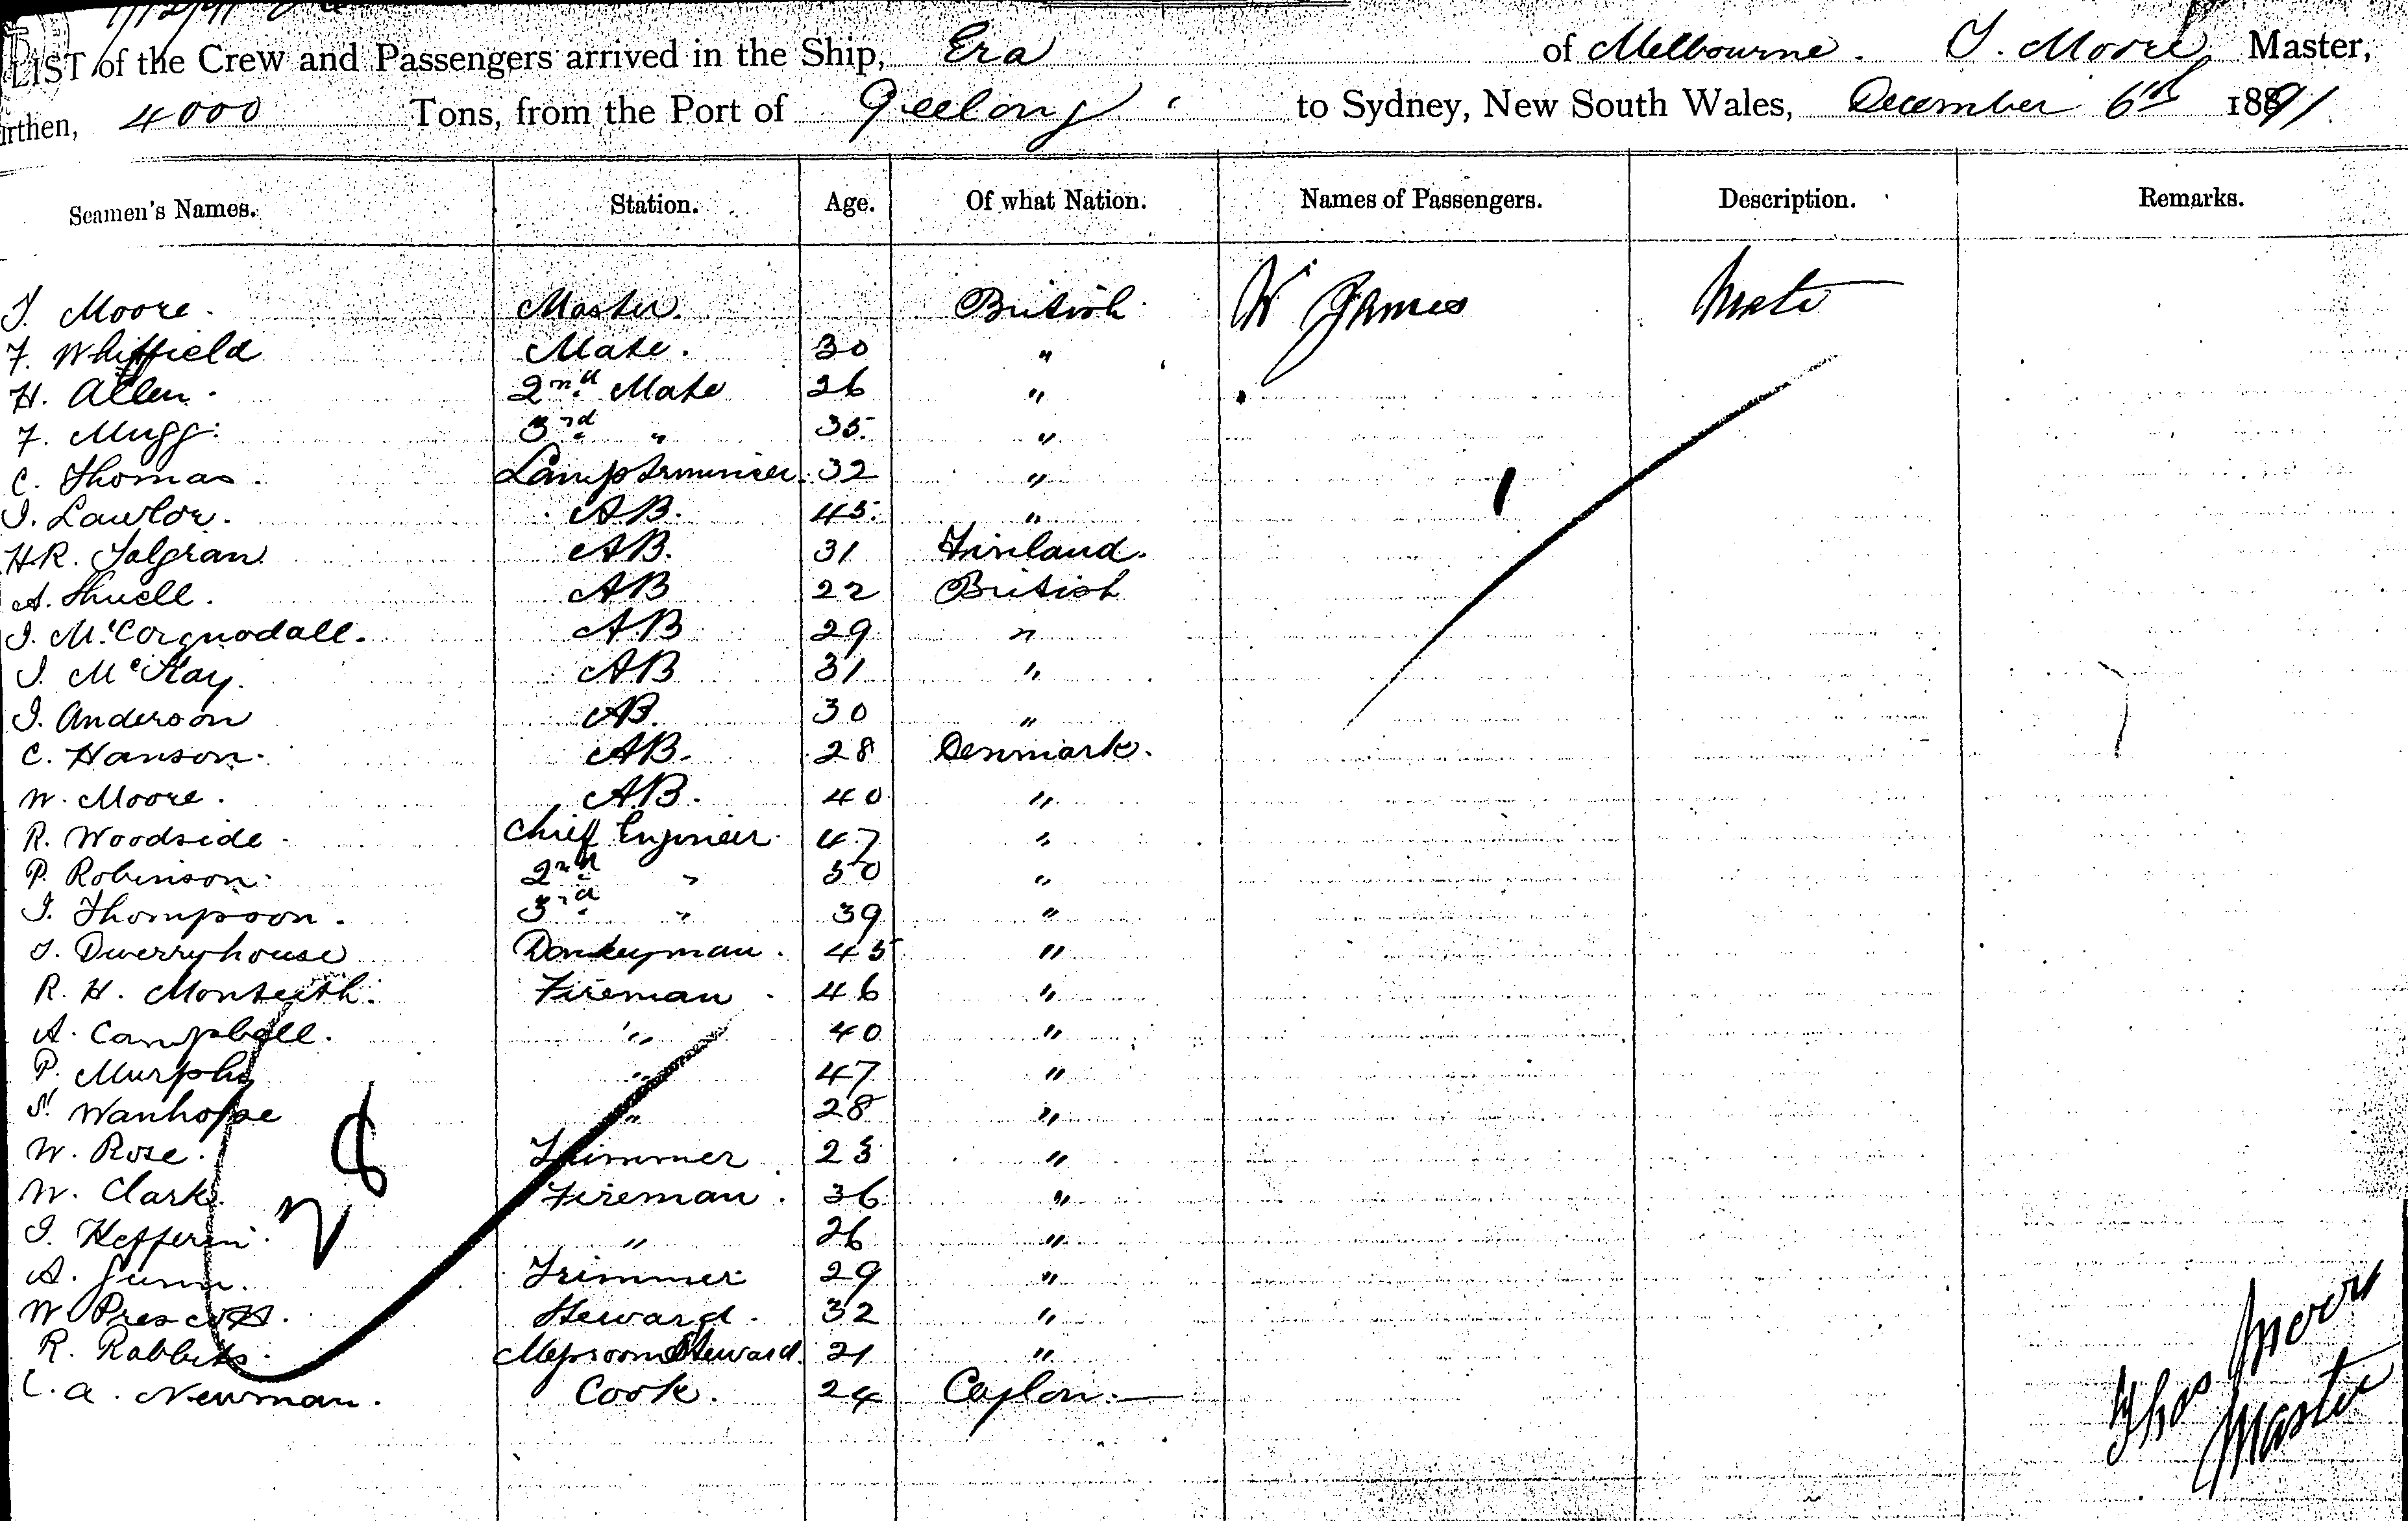 LIST of the Crew and Passengers arrived in the Ship, Era of Melbourne. T. Moore Master,
urthen, 4000 Tons, from the Port of Geelong to Sydney, New South Wales, December 6th 1891
Seamen's Names. Station. Age. Of what Nation. Names of Passengers. Description. Remarks.
T. Moore. Master. British W James Mate
F. Whitfield Mate. 30 "
H. Allen. 2nd Mate 26 "
F. Mugg. 3rd " 35. "
C. Thomas. Lamptrimmer. 32 "
J. Lawlor. AB. 45. "
H.R. Salgran AB. 31 Finland.
A. Shuell. AB 22 British
J. McCorquodall. AB 29 "
J. McKay. AB 31 "
J. Anderson AB. 30 "
C. Hanson. AB. 28 Denmark.
W. Moore. AB. 40 "
R. Woodside. Chief Engineer. 47 "
P. Robinson. 2nd " 50 "
J. Thompson. 3rd " 39 "
J. Dwerryhouse Donkeyman. 45 "
R. H. Monteith. Fireman. 46 "
A. Campbell. " 40 "
P. Murphy " 47 "
S. Wanhope " 28 "
W. Rose. Trimmer 23 "
W. Clark. Fireman. 36 "
J. Hefferin. " 26 "
A. Gunn. Trimmer 29 "
W Prescott. Steward. 32 "
R. Rabbits. Messroom Steward. 21 "
C. A. Newman. Cook. 24 Ceylon.
1
28
Thos Moore
Master